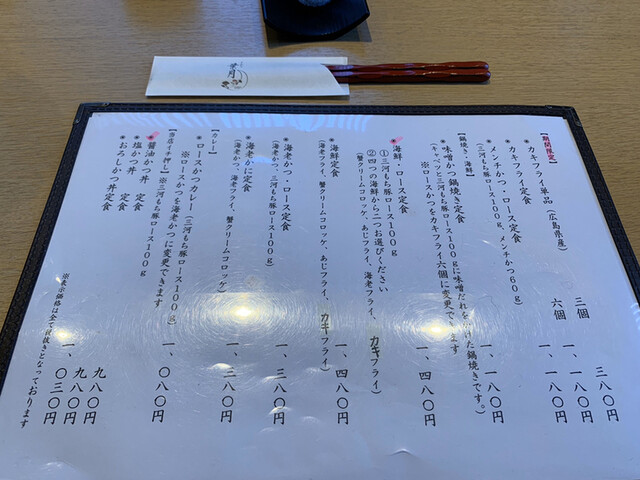 【期間限定】
カキフライ単品(広島県産) 三個 三八〇円
六個 一、一八〇円
カキフライ定食 一、一八〇円
メンチかつ・ロース定食
(三河もち豚ロース100g、メンチかつ60g)
【鍋焼き・海鮮】
味噌かつ鍋焼き定食
(キャベツと三河もち豚100gに味噌だれを
た鍋焼きです。)
※ロースかつをカキフライ六個に変更できます
海鮮・ロース定食 一、四八〇円
①三河もち豚ロース100g
②四つの海鮮から二つお選びください
(蟹クリームコロッケ、あじフライ、海老フライ、カキフライ)
海鮮定食 一、四八〇円
(海老フライ、蟹クリームコロッケ、あじフライ、カキフライ)
海老かつ・ロース定食 一、三八〇円
(海老かつ、三河もち豚ロース100g)
海老かに定食 一、三八〇円
(海老かつ、海老フライ、蟹クリームコロッケ)
【カレー】
ロースかつカレー(三河もち豚ロース100g) 一、〇八〇円
※ロースかつを海老かつに変更できます
【当店イチ押し】※三河もち豚ロース100g
醤油かつ丼 定食 九八〇円
塩かつ丼 定食 九八〇円
おろしかつ丼定食 一、〇三〇円
※表示価格は全て税抜きとなっております